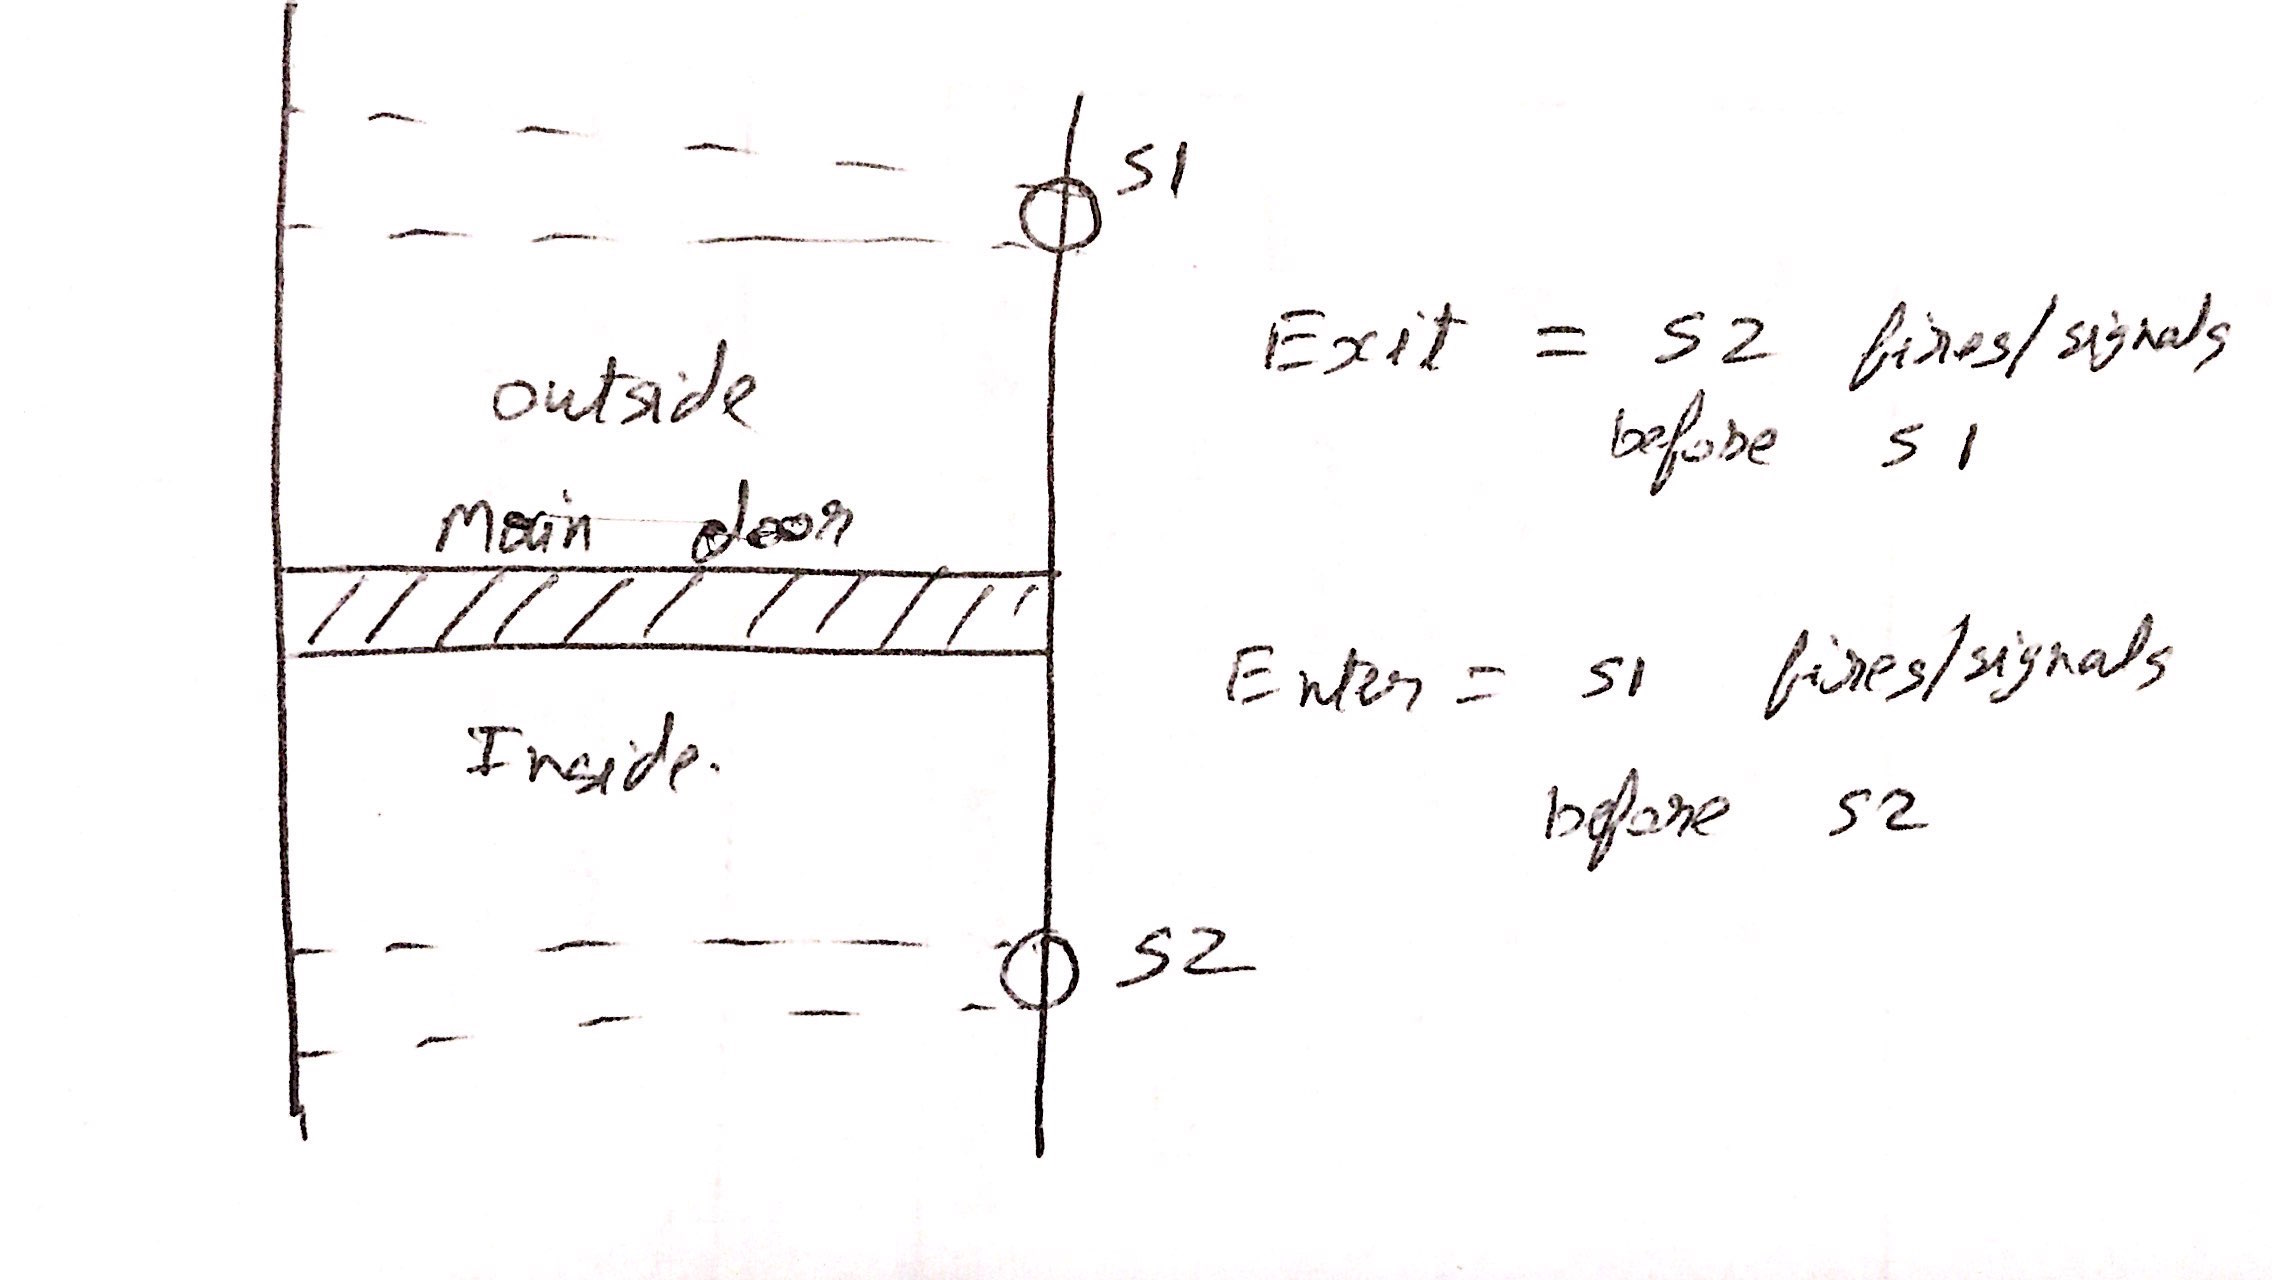 S1
outside
Main door
Inside.
S2
Exit = S2 fires/signals
before S1
Enter = S1 fires/signals
before S2